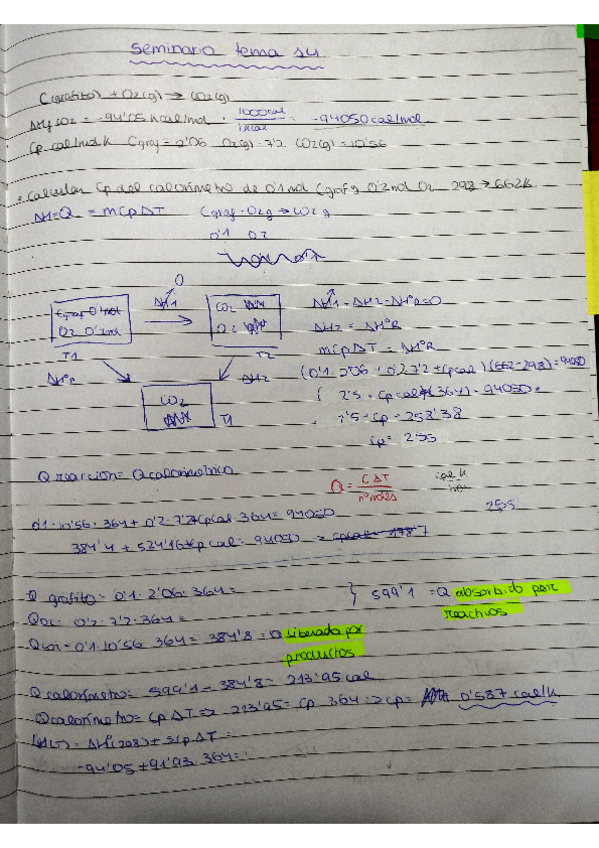 Seminario tema 14
C(grafito) + O2(g) → CO2(g)
ΔHf CO2 = -94'05 kcal/mol · 1000cal / 1kcal = -94050 cal/mol
Cp cal/mol k Cgraf = 2'06 O2(g) = 7'2 CO2(g) = 10'56
Calcular Cp del calorímetro de 0'1 mol Cgraf y 0'2 mol O2 298 → 662k
ΔH=Q = mCpΔT Cgraf + O2g → CO2 g
0'1 0'2
0
Cgraf 0'1mol
O2 0'2mol
T1
ΔH1
CO2
T2
ΔH1 + ΔH2 - ΔHºR = 0
ΔH2 = ΔHºR
mcpΔT = ΔHºR
ΔHºR
ΔH2
CO2
T1
(0'1·2'06 + 0'2·7'2 + Cpcal)(662-298) = 94050
7'5 + Cp = 258'38
Cp = 255
Q reacción = Q calorímetro
Q = CΔT / nºmoles
255
0'1·10'56·364 + 0'2·7'2 + Cpcal·364 = 94050
384'4 + 524'16 + Cpcal = 94050
Q grafito = 0'1·2'06·364 =
} 599'1 = Q absorbido por reactivos
QO2 = 0'2·7'2·364 =
QCO2 = 0'1·10'56·364 = 384'8 = Q liberado por productos
Q calorímetro = 599'1 - 384'8 = 213'95 cal
Qcalorímetro = Cp ΔT => 213'95 = Cp 364 => Cp = 0'587 cal/k
ΔH(T) = ΔH(298) + ΔCpΔT =
-94'05 + 91'93·364 =